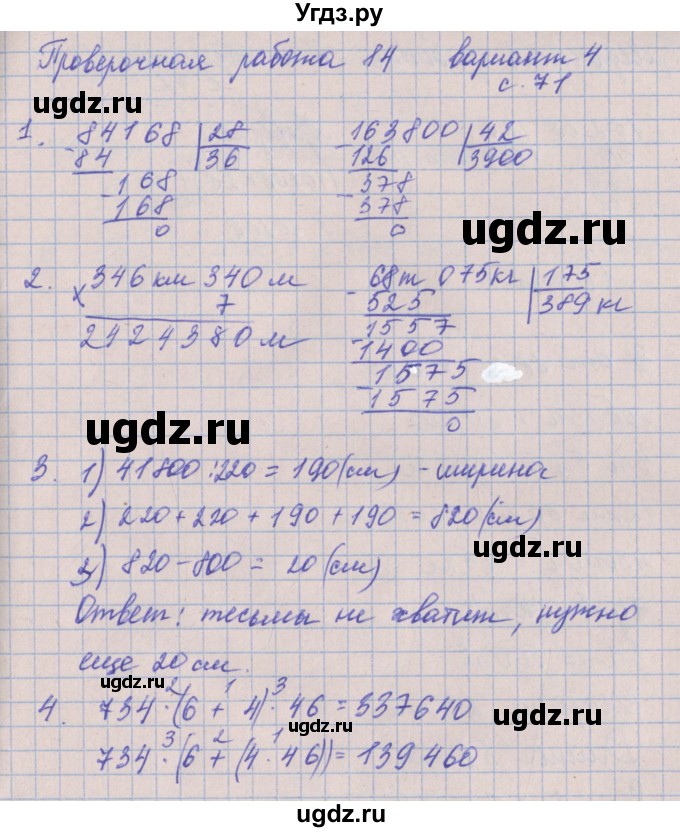 Угдз.ру
Проверочная работа 84 вариант 4
с. 71
ugdz.ru
1. 84168 | 28
- 84 | 36
- 168
168
0
- 163800 | 42
126 | 3900
- 378
378
0
ugdz.ru
2. × 346 км 340 м
7
2424380 м
- 68 т 075 кг | 175
525 | 389 кг
- 1557
1400
- 1575
1575
0
ugdz.ru
3. 1) 41800 : 220 = 190 (см) - ширина
2) 220 + 220 + 190 + 190 = 820 (см)
3) 820 - 800 = 20 (см)
ugdz.ru
Ответ: тесьмы не хватит, нужно
еще 20 см.
ugdz.ru
4. 734 ·² (6 +¹ 4) ·³ 46 = 337640
734 ·³ (6 +² (4 ·¹ 46)) = 139460
ugdz.ru
ugdz.ru
ugdz.ru